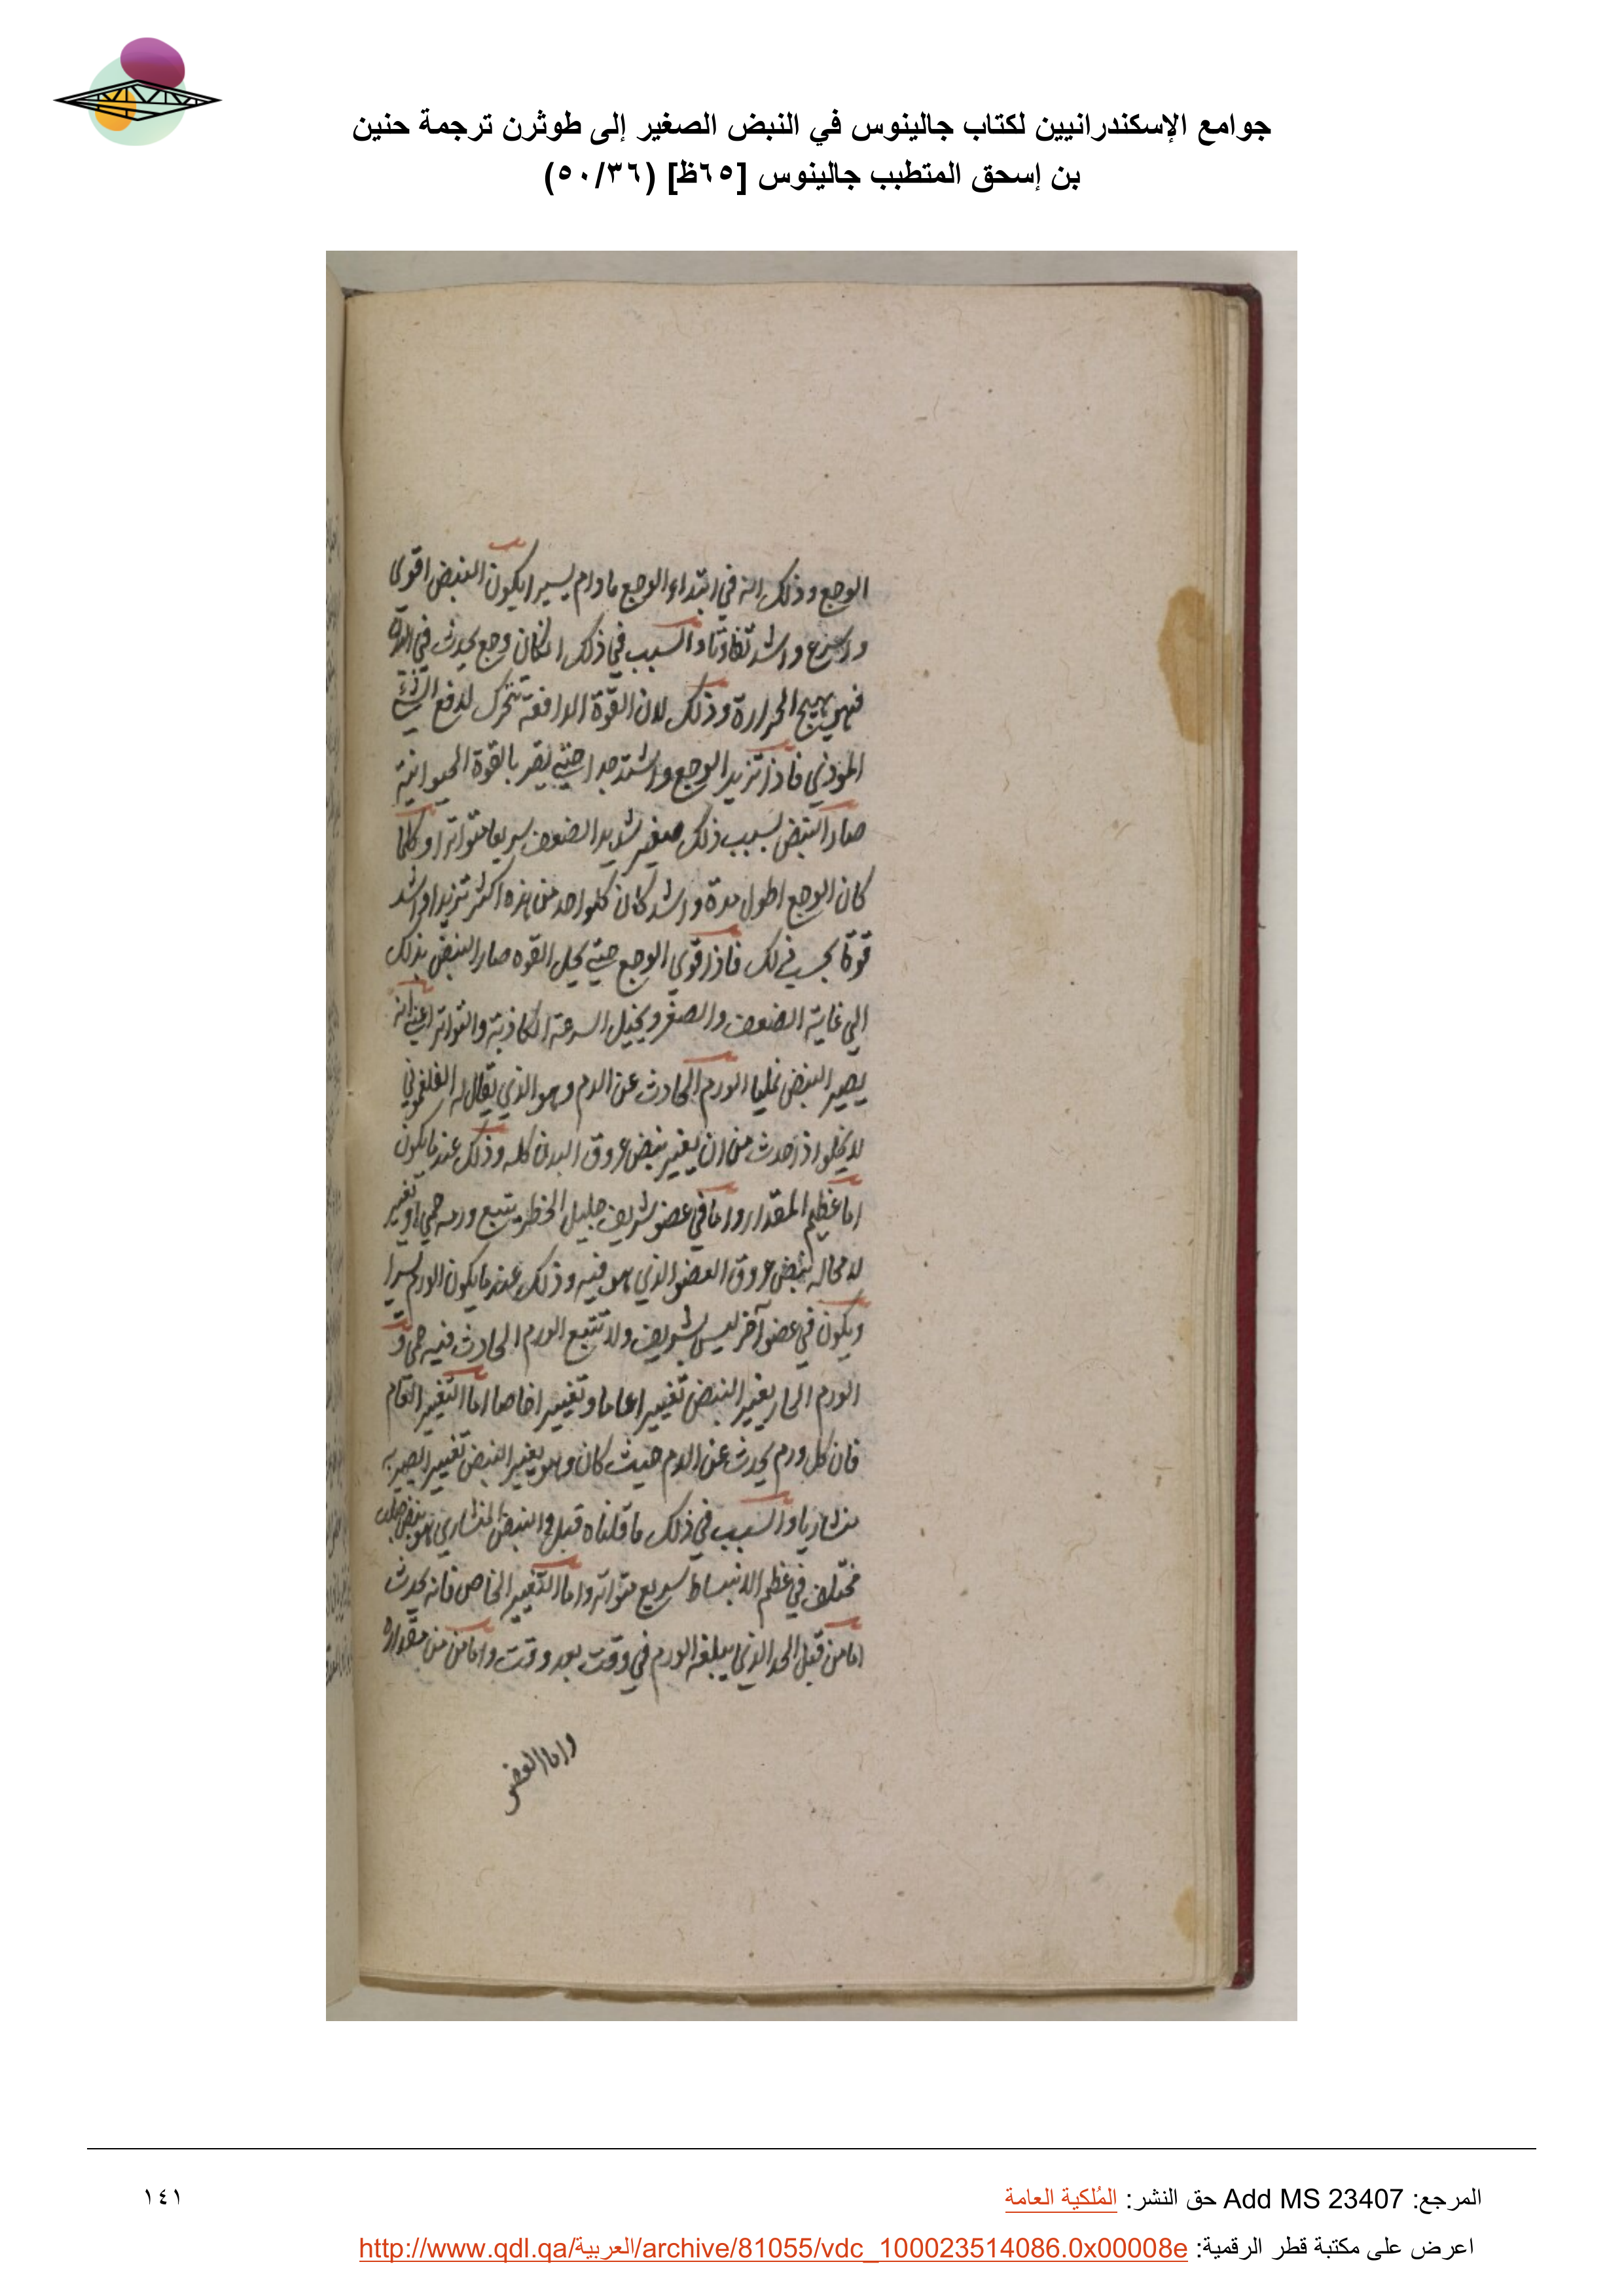 جوامع الإسكندرانيين لكتاب جالينوس في النبض الصغير إلى طوثرن ترجمة حنين
بن إسحق المتطبب جالينوس [٦٥ظ] (٥٠/٣٦)
الوجع وذلك انه في ابتداء الوجع مادام يسيرا يكون النبض اقوى
واسرع واشد تفاوتا والسبب في ذلك ان كان وجع يحدث في
فهو يهيج الحرارة وذلك لان القوة الدافعة تتحرك لدفع الشئ
الموذي فاذا تزيد الوجع واشتد جدا حتى يضر بالقوة الحيوانية
صار النبض بسبب ذلك صغير شديد الضعف سريعا متواترا وكلما
كان الوجع اطول مدة واشد كان كلواحد من هذه اكثر تزيدا واشد
قوة بحسب ذلك فاذا قوي الوجع حتى يحل القوه صار النبض بذلك
الي غاية الضعف والصغر ويخيل السرعة الكاذبة والتواتر اعني انه
يصير النبض نمليا الورم الحادث عن الدم وهو الذي يقال له الفلغموني
لا يخلو اذا حدث من ان يغير نبض عروق البدن كله وذلك عند ما يكون
اما عظيم المقدار واما في عضو شريف جليل الخطر يتبع ورمه حمي او تغير
لا محاله نبض عروق العضو الذي هو فيه وذلك عند ما يكون الورم يسيرا
ويكون في عضو آخر ليس بشريف ولا تتبع الورم الحادث فيه حمي و
الورم الحار يغير النبض تغييرا عاما وتغييرا خاصا اما التغيير العام
فان كل ورم يحدث عن الدم حيث كان وهو يغير النبض تغييرا يصير به
منشاريا والسبب في ذلك ما قلناه قبل والنبض المنشاري هو نبض صلب
مختلف في عظم الانبساط سريع متواتر واما التغيير الخاص فانه يحدث
اما من قبل الحد الذي يبلغه الورم في وقت بعد وقت واما من من مقداره
واما العضو
المرجع: Add MS 23407 حق النشر: المُلكية العامة
١٤١
اعرض على مكتبة قطر الرقمية: http://www.qdl.qa/العربية/archive/81055/vdc_100023514086.0x00008e